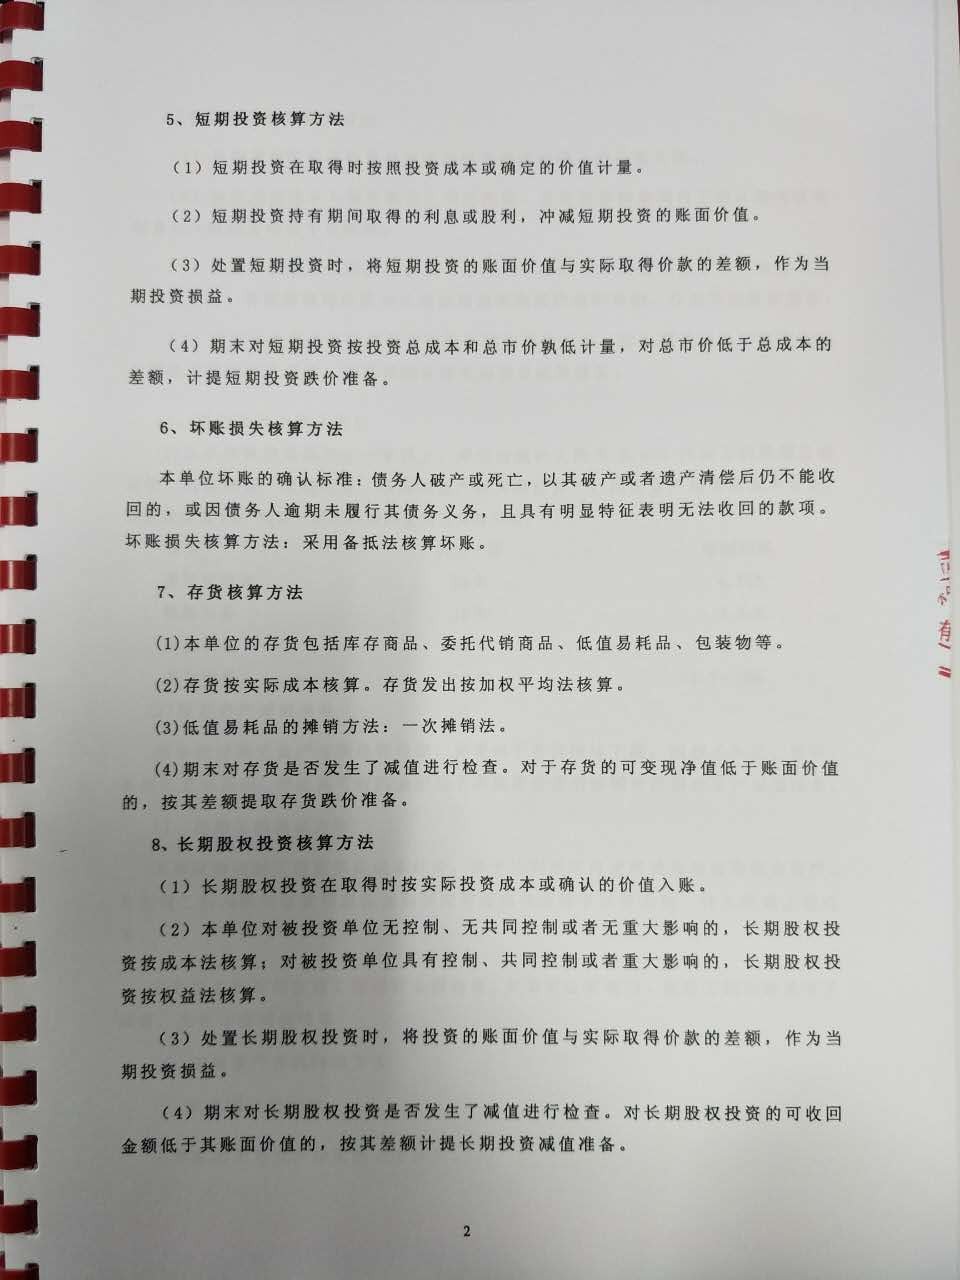 5、短期投资核算方法
（1）短期投资在取得时按照投资成本或确定的价值计量。
（2）短期投资持有期间取得的利息或股利，冲减短期投资的账面价值。
（3）处置短期投资时，将短期投资的账面价值与实际取得价款的差额，作为当
期投资损益。
（4）期末对短期投资按投资总成本和总市价孰低计量，对总市价低于总成本的
差额，计提短期投资跌价准备。
6、坏账损失核算方法
本单位坏账的确认标准：债务人破产或死亡，以其破产或者遗产清偿后仍不能收
回的，或因债务人逾期未履行其债务义务，且具有明显特征表明无法收回的款项。
坏账损失核算方法：采用备抵法核算坏账。
7、存货核算方法
(1)本单位的存货包括库存商品、委托代销商品、低值易耗品、包装物等。
(2)存货按实际成本核算。存货发出按加权平均法核算。
(3)低值易耗品的摊销方法：一次摊销法。
(4)期末对存货是否发生了减值进行检查。对于存货的可变现净值低于账面价值
的，按其差额提取存货跌价准备。
8、长期股权投资核算方法
（1）长期股权投资在取得时按实际投资成本或确认的价值入账。
（2）本单位对被投资单位无控制、无共同控制或者无重大影响的，长期股权投
资按成本法核算；对被投资单位具有控制、共同控制或者重大影响的，长期股权投
资按权益法核算。
（3）处置长期股权投资时，将投资的账面价值与实际取得价款的差额，作为当
期投资损益。
（4）期末对长期股权投资是否发生了减值进行检查。对长期股权投资的可收回
金额低于其账面价值的，按其差额计提长期投资减值准备。
2